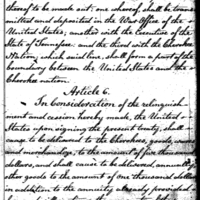 thereof to be made out; one whereof shall be trans=
mitted and deposited in the War Office of the
United States; another with the Executive of the
State of Tennessee and the third with the Cherokee
Nation, which said line, shall form a part of the
boundary between the United States and the
Cherokee nation.
Article 6.
In Consideration of the relinquish=
ment and cession hereby made, the United
States upon signing the present treaty, shall
cause to be delivered to the Cherokees, goods,
to the amount of five thousand
dollars, and shall cause to be delivered, annually,
other goods to the amount of one thousand dollars
in addition to the annuity already provided